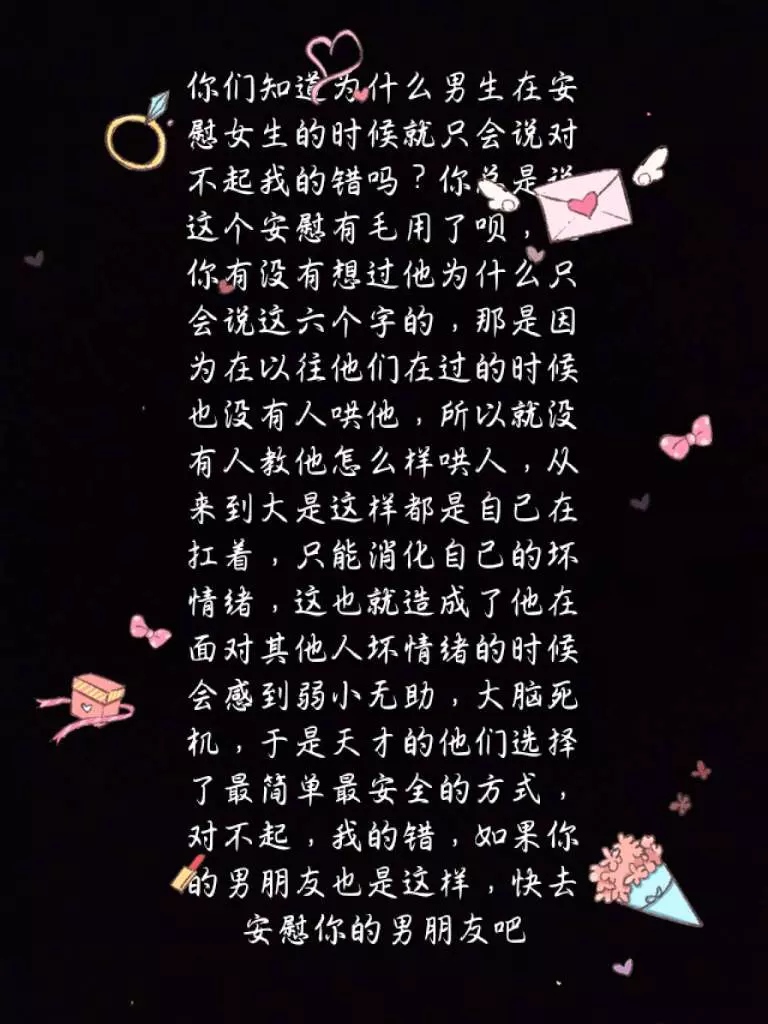 你们知道为什么男生在安
慰女生的时候就只会说对
不起我的错吗？你总是说
这个安慰有毛用了呗，
你有没有想过他为什么只
会说这六个字的，那是因
为在以往他们在过的时候
也没有人哄他，所以就没
有人教他怎么样哄人，从
来到大是这样都是自己在
扛着，只能消化自己的坏
情绪，这也就造成了他在
面对其他人坏情绪的时候
会感到弱小无助，大脑死
机，于是天才的他们选择
了最简单最安全的方式，
对不起，我的错，如果你
的男朋友也是这样，快去
安慰你的男朋友吧